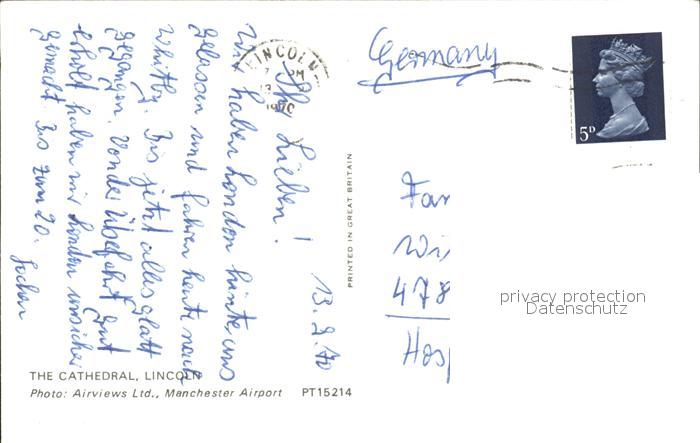 13.9.70
Ihr Lieben!
Wir haben London hinter uns
gelassen und fahren heute nach
Whitby. Bis jetzt alles glatt
gegangen. Von der Überfahrt gut
erholt haben wir London unsicher
gemacht. Bis zum 20.
Jochen
THE CATHEDRAL, LINCOLN
Photo: Airviews Ltd., Manchester Airport PT15214
PRINTED IN GREAT BRITAIN
LINCOLN
PM
13
1970
Germany
5D
Fam
Wi
478
Hosp
privacy protection
Datenschutz